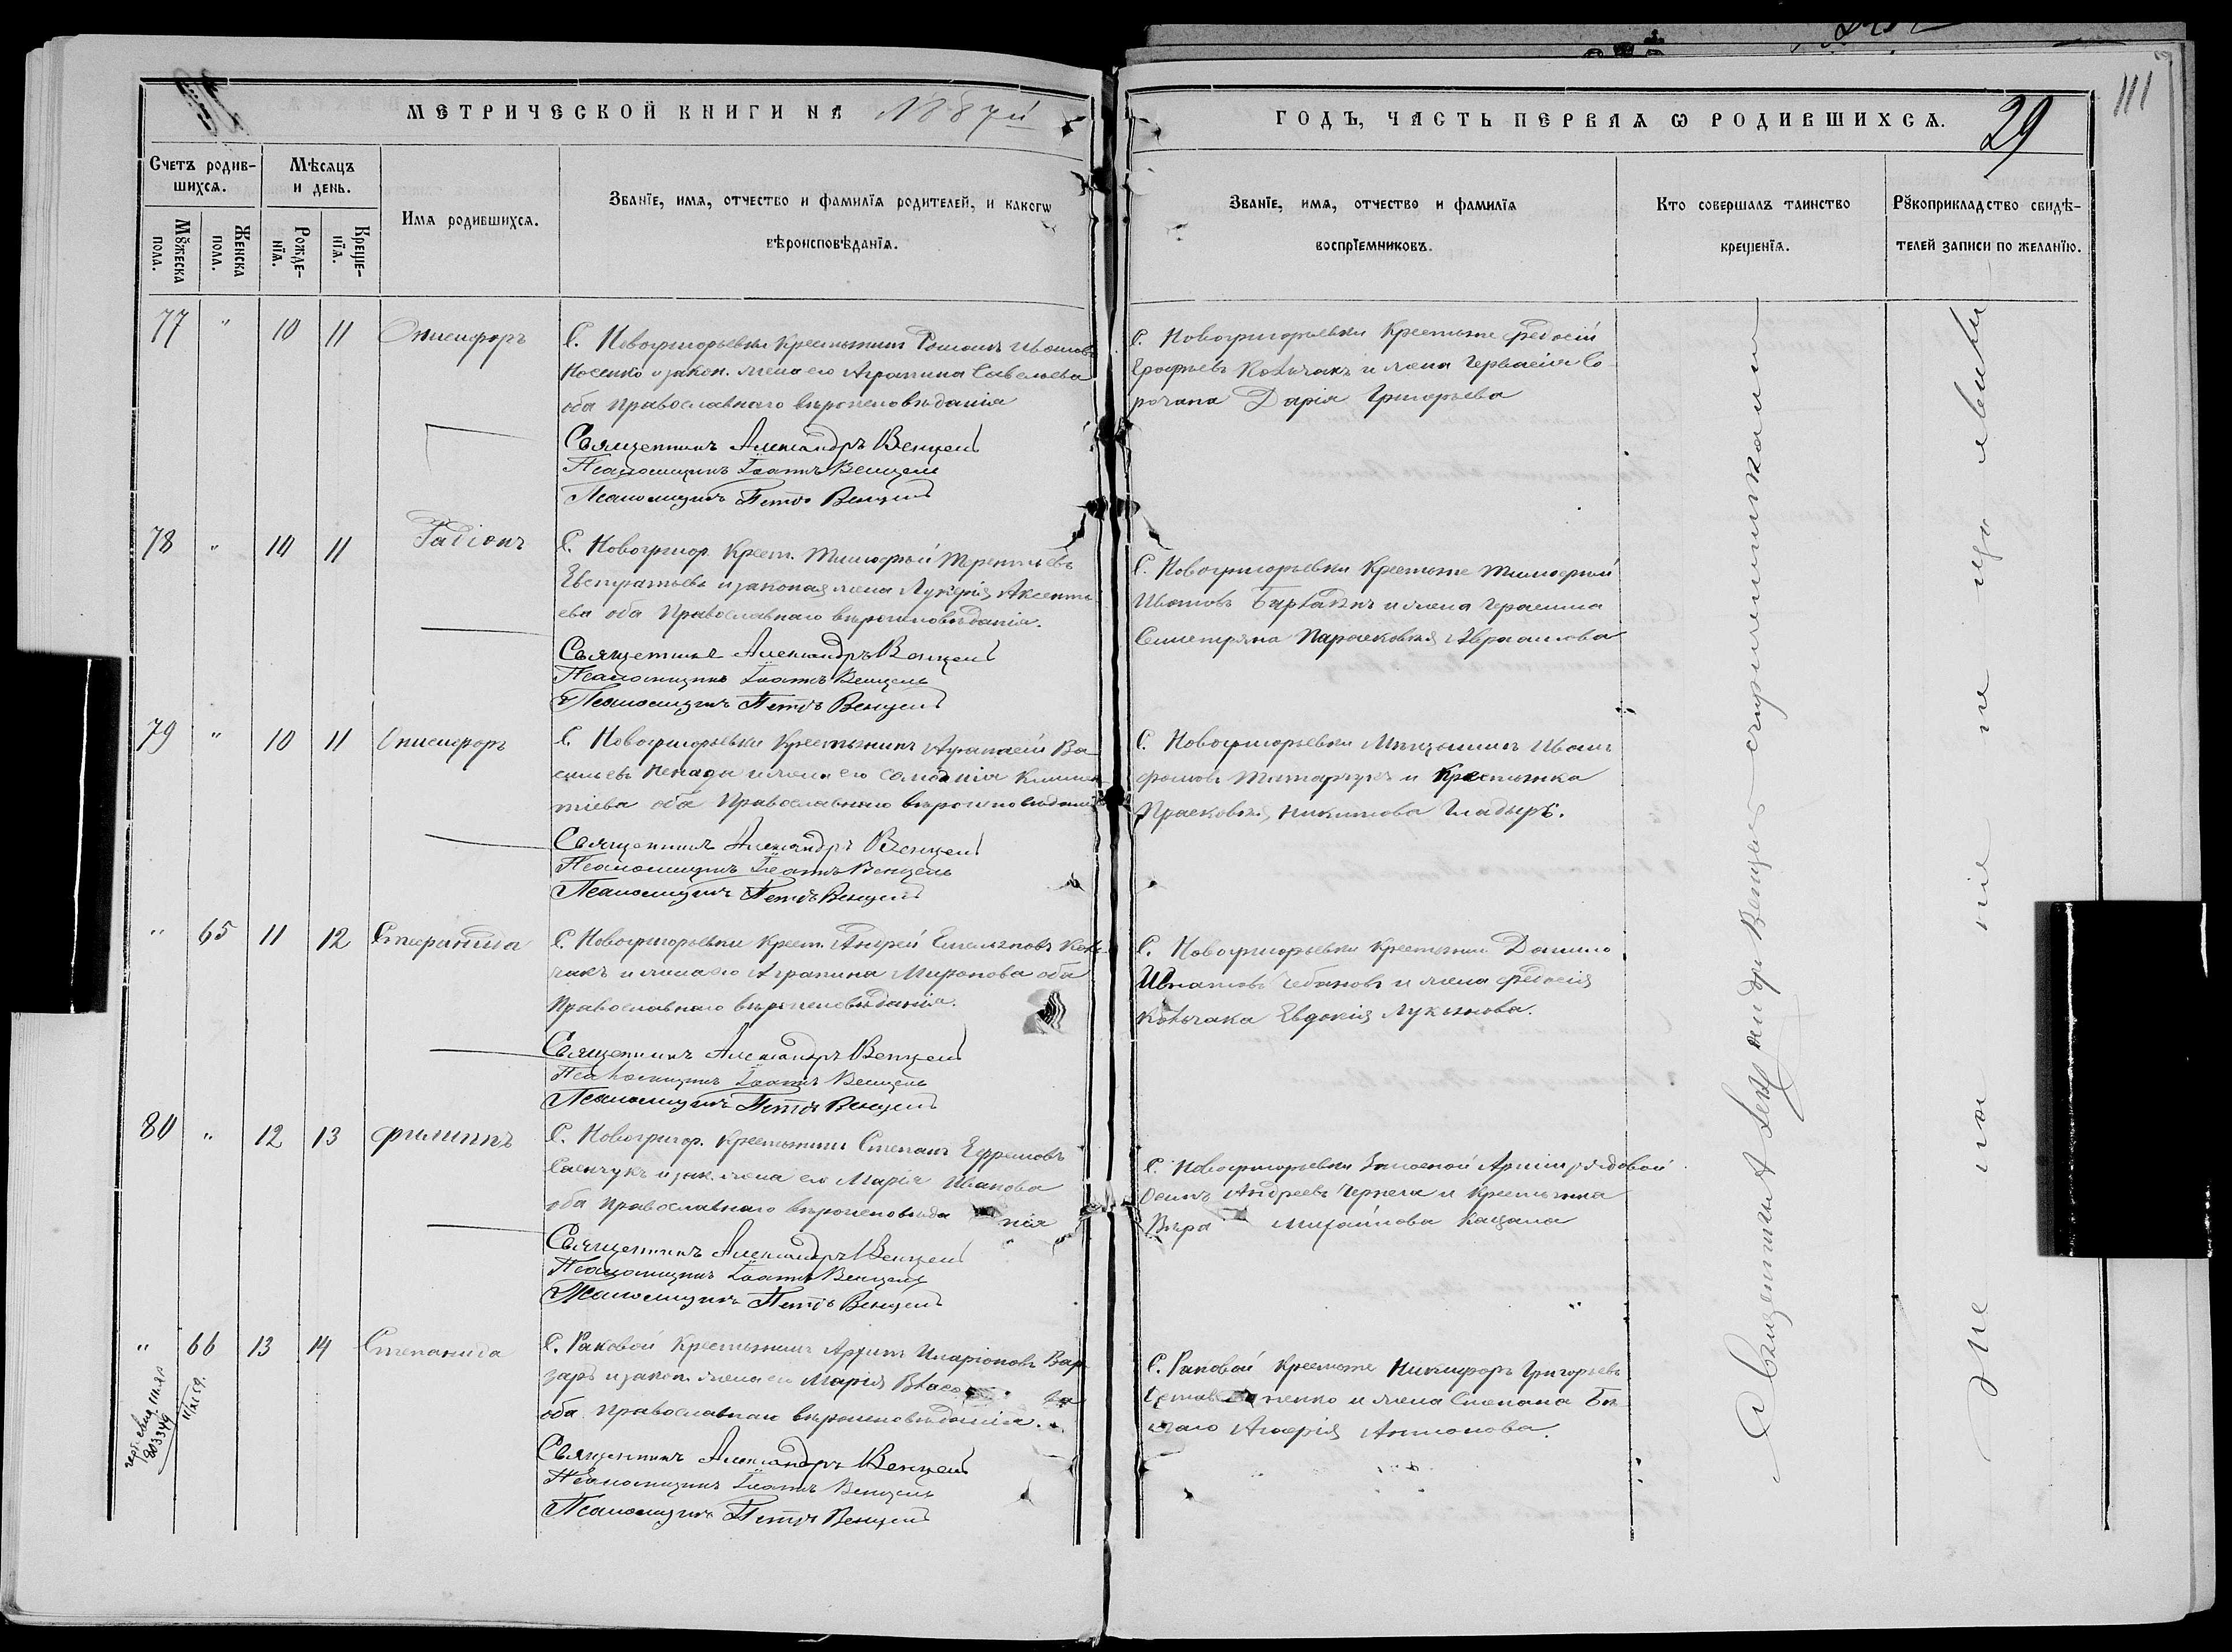 111
МЕТРИЧЕСКОЙ КНИГИ НА 1887й
ГОДЪ, ЧАСТЬ ПЕРВАЯ Ѡ РОДИВШИХСѦ.
29
Счетъ родив-
шихсѧ.
Мѣсѧцъ
и день.
Мꙋжеска
пола.
Женска
пола.
Рожде-
нїѧ.
Креще-
нїѧ.
Имѧ родившихсѧ.
Званїе, имѧ, отчество и фамилїѧ родителей, и какогѡ
вѣроисповѣданїѧ.
Званїе, имѧ, отчество и фамилїѧ
воспрїемниковъ.
Кто совершалъ таинство
крещенїѧ.
Рꙋкоприкладство свидѣ-
телей записи по желанїю.
77 " 10 11 Онисифоръ
С. Новогригорьевки Крестьянинъ Романъ Ивановъ
Носенко и закон. жена его Агрипина Савельева
оба православнаго вѣроисповѣданія
Священникъ Александръ Венцель
Псаломщикъ Іоаннъ Венцель
Псаломщикъ Петръ Венцель
С. Новогригорьевки Крестьяне Федосій
Ерофѣевъ Ковтакъ и жена Гервасія Со
рочана Дарія Григорьева
78 " 10 11 Родіонъ
С. Новогригор. Крест. Тимофей Терентьевъ
Евстратьевъ и законая жена Лукерія Аксенть
ева оба Православнаго вѣроисповѣданія.
Священникъ Александръ Венцель
Псаломщикъ Іоаннъ Венцель
Псаломщикъ Петръ Венцель
С. Новогригорьевки Крестьяне Тимофей
Ивановъ и жена Герасима
Параскевія Абрамова
79 " 10 11 Онисифоръ
С. Новогригорьевки Крестьянинъ Афанасій Ва
сильевъ и жена его Клемен
тіева оба Православнаго вѣроисповѣданія
Священникъ Александръ Венцель
Псаломщикъ Іоаннъ Венцель
Псаломщикъ Петръ Венцель
С. Новогригорьевки Мѣщанинъ Иванъ
Фомовъ Татарчукъ и Крестьянка
Прасковія Никитова Гладыръ.
" 65 11 12 Стефанида
С. Новогригорьевки Крест. Андрей Емельяновъ Ков
чакъ и жена его Агрипина Миронова оба
Православнаго вѣроисповѣданія.
Священникъ Александръ Венцель
Псаломщикъ Іоаннъ Венцель
Псаломщикъ Петръ Венцель
С. Новогригорьевки Крестьяне Данило
Игнатовъ Чебановъ и жена Федосія
Ковчака Евдокія Лукьянова.
80 " 12 13 Филиппъ
С. Новогригор. Крестьянинъ Степанъ Ефремовъ
Савчукъ и зак. жена его Марія Иванова
оба православнаго вѣроисповѣданія
Священникъ Александръ Венцель
Псаломщикъ Іоаннъ Венцель
Псаломщикъ Петръ Венцель
С. Новогригорьевки Запасной Арміи рядовой
Осипъ Андреевъ Чернега и Крестьянка
Вѣра Михайлова Кацапа
" 66 13 14 Степанида
С. Раковой Крестьянинъ Архипъ Иларіоновъ Вар
заръ и закон. жена его Марія Власова
оба православнаго вѣроисповѣданія.
Священникъ Александръ Венцель
Псаломщикъ Іоаннъ Венцель
Псаломщикъ Петръ Венцель
С. Раковой Крестьяне Никифоръ Григорьевъ
и жена Степана Бѣ
лаго Агафія Антонова.
803349
11/XI 59.
Священникъ Александръ Венцель съ причетниками